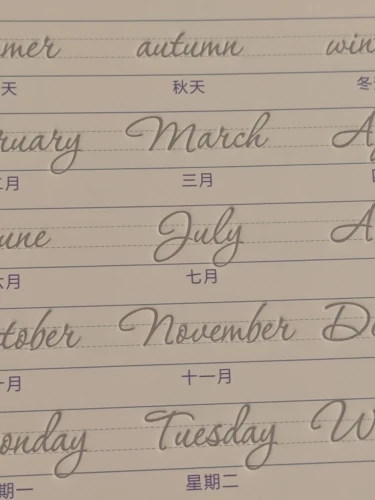 mer autumn win
天 秋天 冬
ruary March A
二月 三月
une July A
六月 七月
tober November De
一月 十一月
onday Tuesday W
期一 星期二